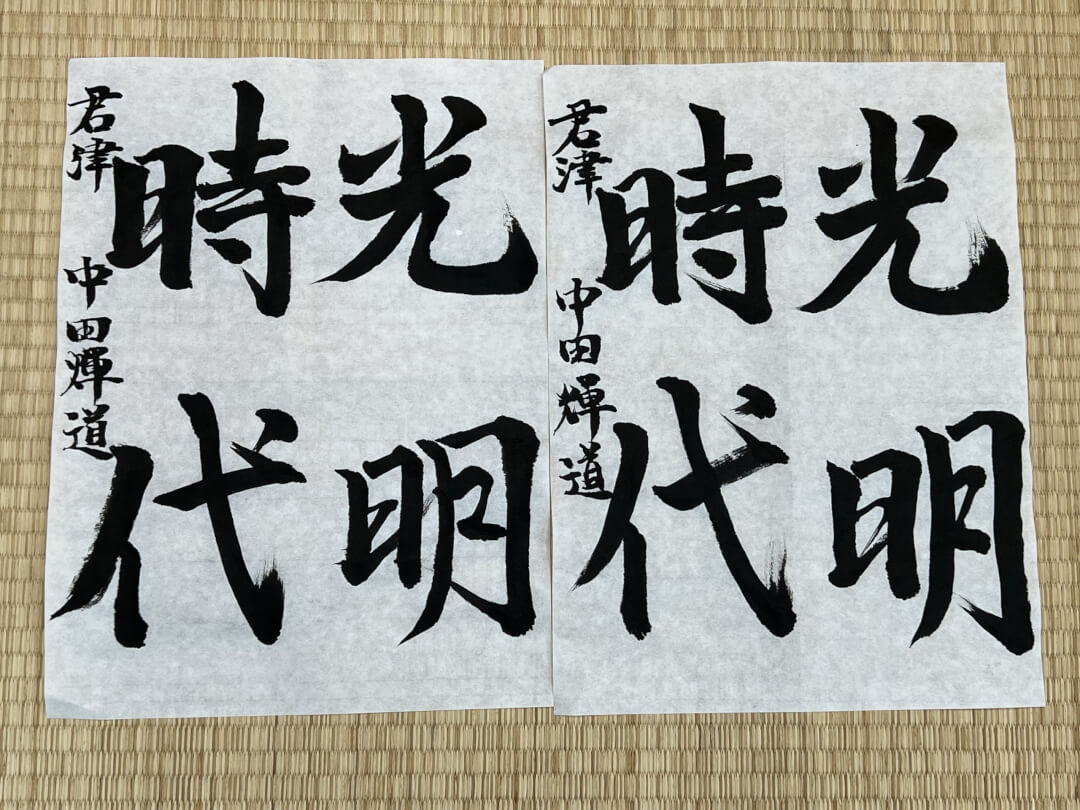 光明
時代
君津 中田輝道
光明
時代
君津 中田輝道